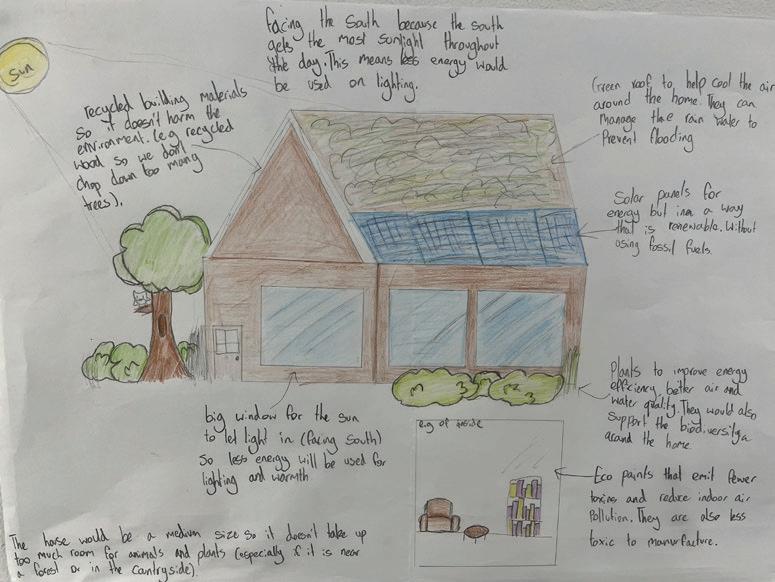 Sun
facing the South because the south
gets the most sunlight throughout
the day. This means less energy would
be used on lighting.
recycled building materials
so it doesn't harm the
environment. (e.g recycled
wood so we don't
chop down too many
trees).
Green roof to help cool the air
around the home. They can
manage the rain water to
Prevent flooding
Solar panels for
energy but in a way
that is renewable. Without
using fossil fuels.
Plants to improve energy
efficiency better air and
water quality. They would also
support the biodiversity
around the home.
big window for the sun
to let light in (facing south)
so less energy will be used for
lighting and warmth
e.g of inside
Eco paints that emit fewer
toxins and reduce indoor air
Pollution. They are also less
toxic to manufacture.
The house would be a medium size so it doesn't take up
too much room for animals and plants (especially if it is near
a forest or in the countryside).